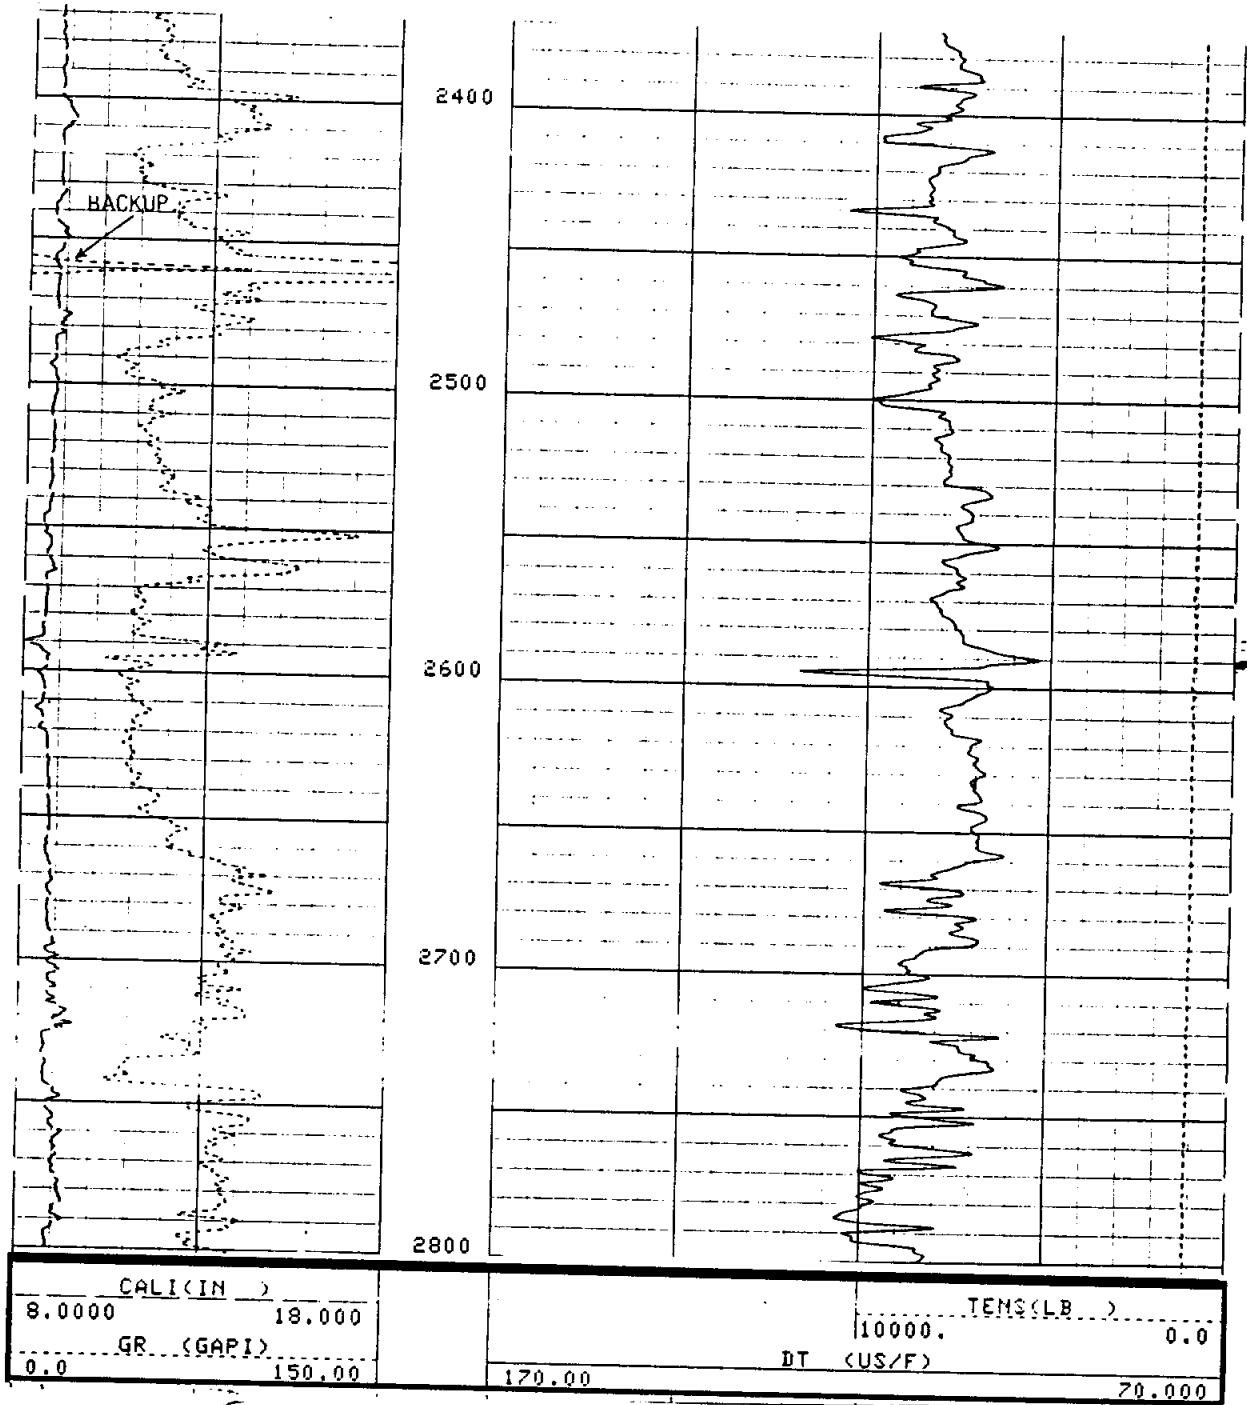 2400
BACKUP
2500
2600
2700
2800
CALI(IN )
8.0000 18.000
GR (GAPI)
0.0 150.00
TENS(LB )
10000. 0.0
DT (US/F)
170.00 70.000